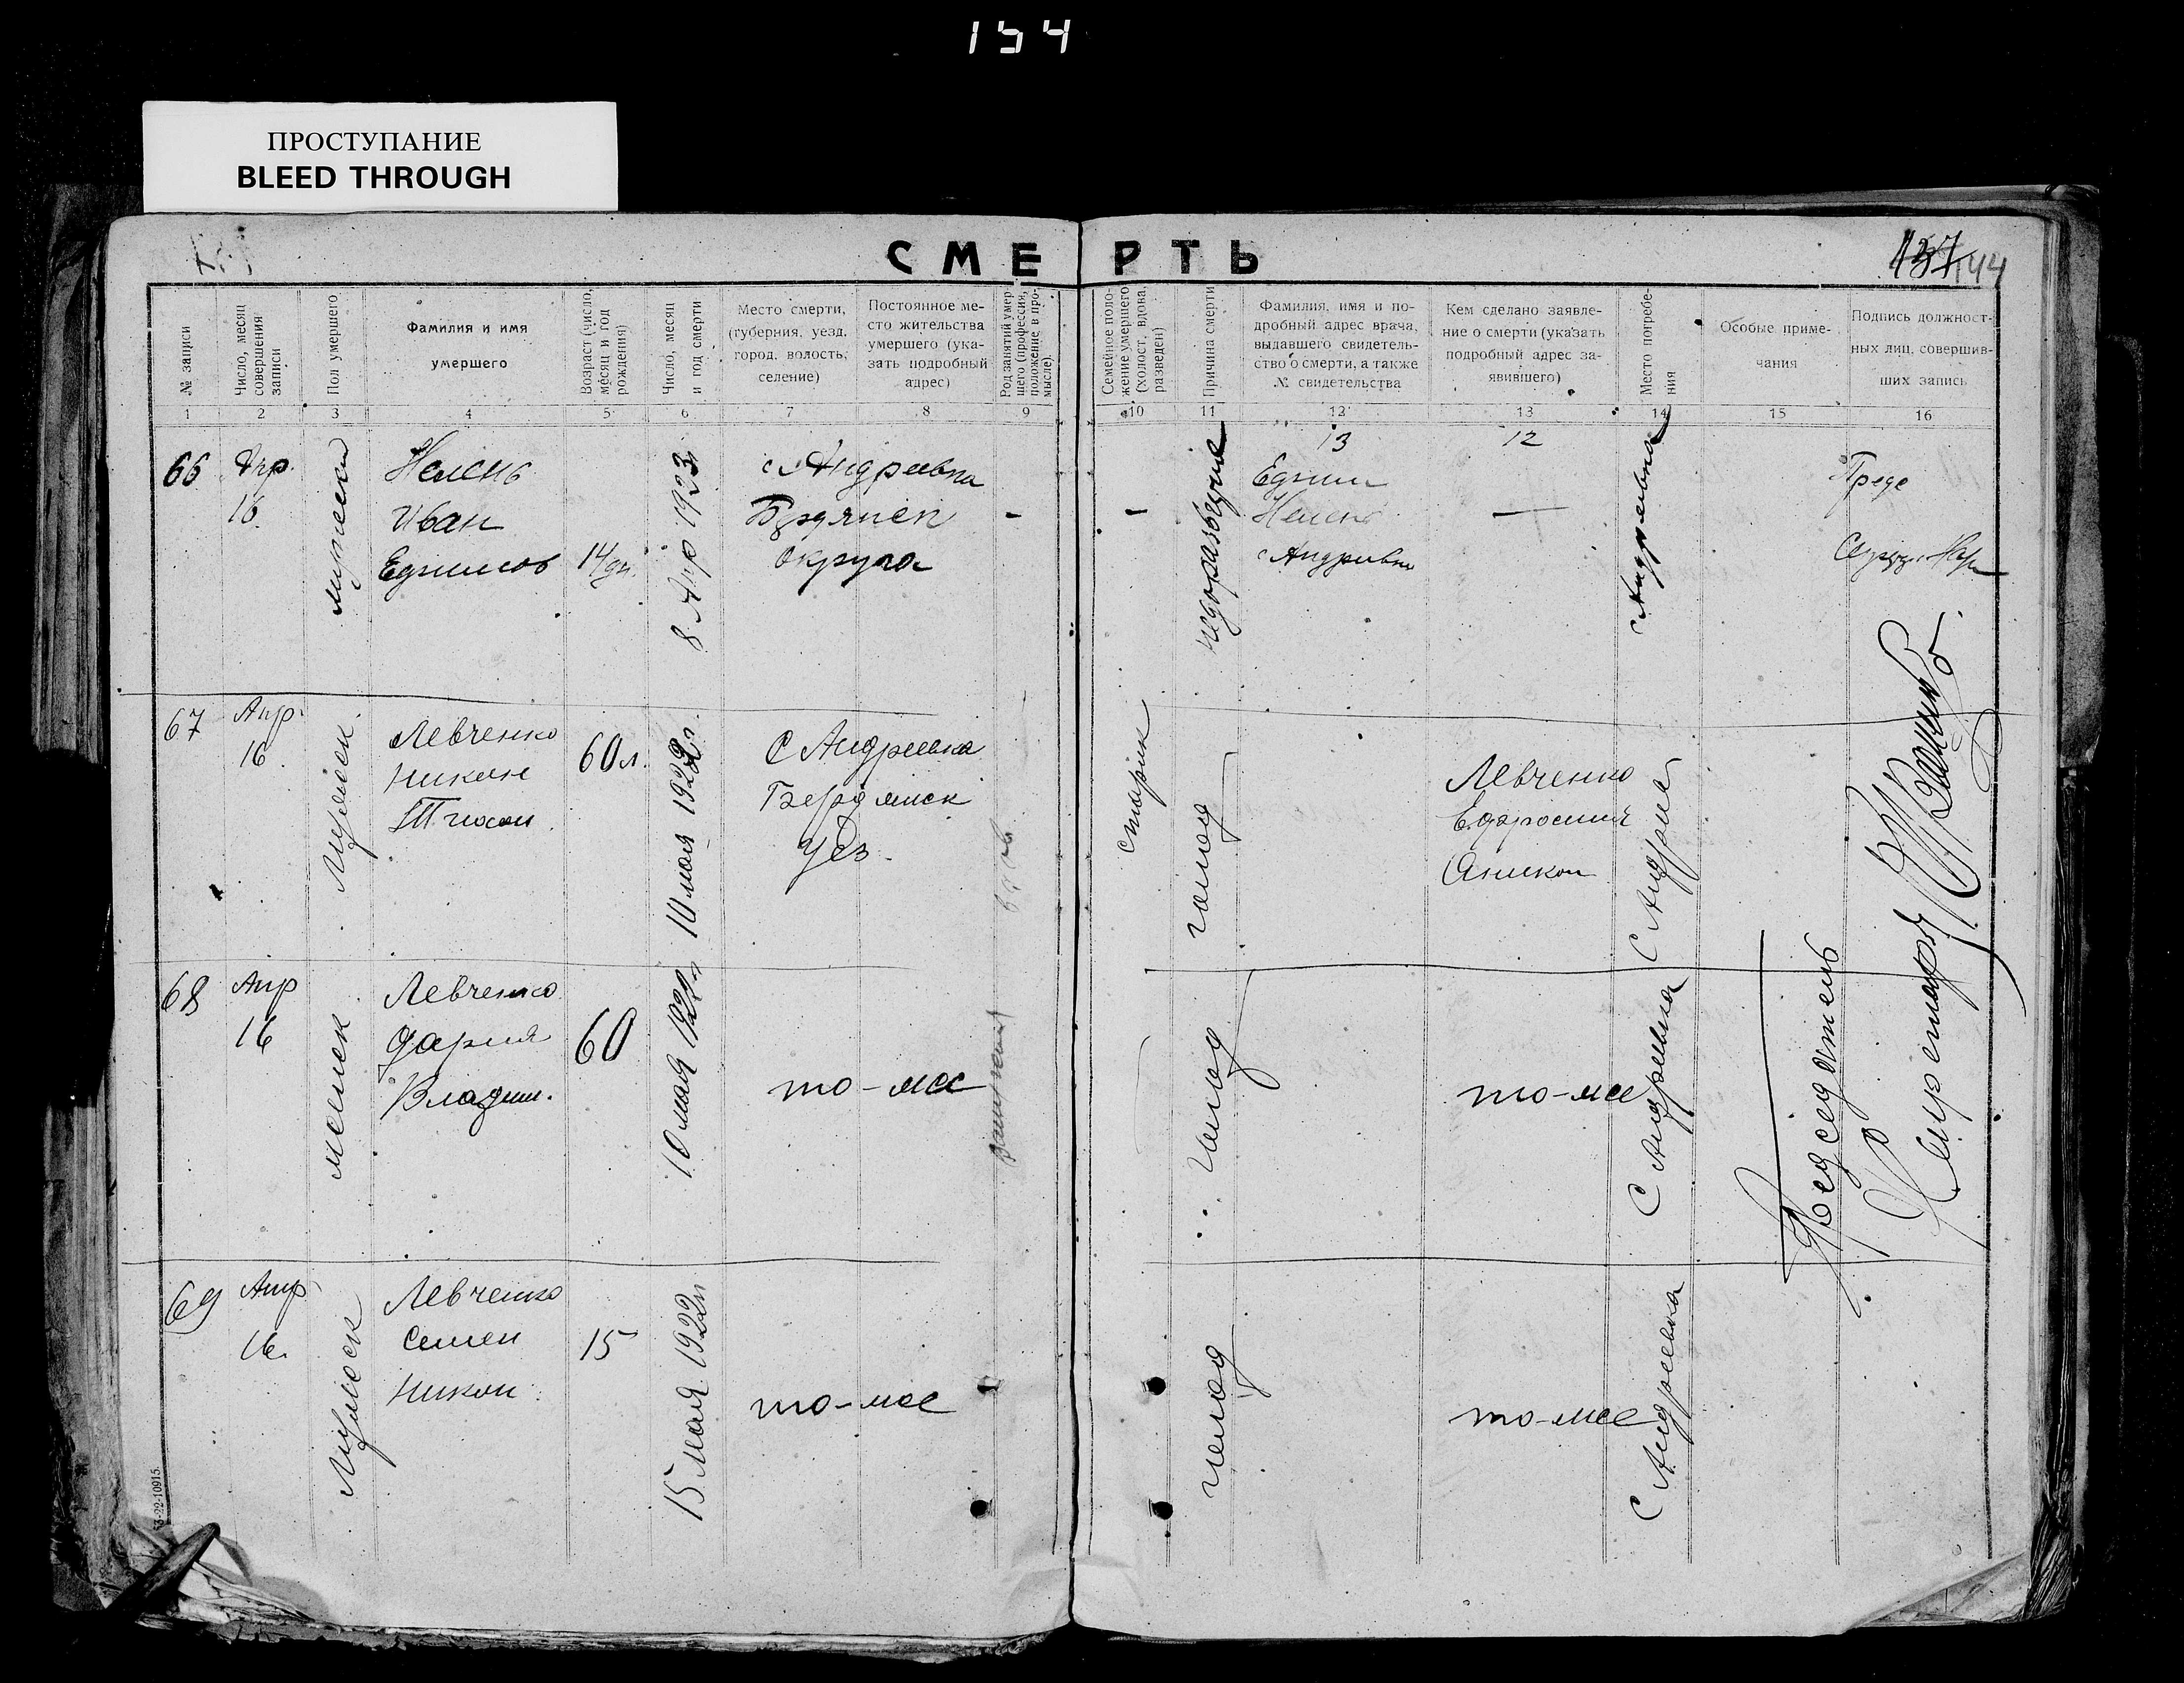 154
ПРОСТУПАНИЕ
BLEED THROUGH
СМЕРТЬ
137 144
№ записи
Число, месяц совершения записи
Пол умершего
Фамилия и имя умершего
Возраст (число, месяц и год рождения)
Число, месяц и год смерти
Место смерти, (губерния, уезд, город, волость, селение)
Постоянное место жительства умершего (указать подробный адрес)
Род занятий умершего (профессия, положение в промысле).
Семейное положение умершего (холост, вдова, разведен)
Причина смерти
Фамилия, имя и подробный адрес врача, выдавшего свидетельство о смерти, а также № свидетельства
Кем сделано заявление о смерти (указать подробный адрес заявившего)
Место погребения
Особые примечания
Подпись должностных лиц, совершивших запись
1 2 3 4 5 6 7 8 9 10 11 12 13 14 15 16
13 12
66
Апр.
16.
мужеск
Иван
14 дн.
8 Апр 1923
с Андреевка
Бердянск
округа
-
-
с Андреевка
—
с Андреевка
67
Апр.
16
Мужеск.
Левченко
Никон
60 л.
10 мая 1922 г.
С Андреевка
Бердянск
Уез.
старик
голод
Левченко
С Андрее
68
Апр
16
женск
Левченко
Дария
Владим.
60
10 мая 1922 г
то-же
голод
то-же
С Андреевка
69
Апр
16.
Мужеск
Левченко
Семен
Никон.
15
15 мая 1922 г
то-же
голод
то-же
С Андреевка
Председатель
Секретарь
53-22-10915.